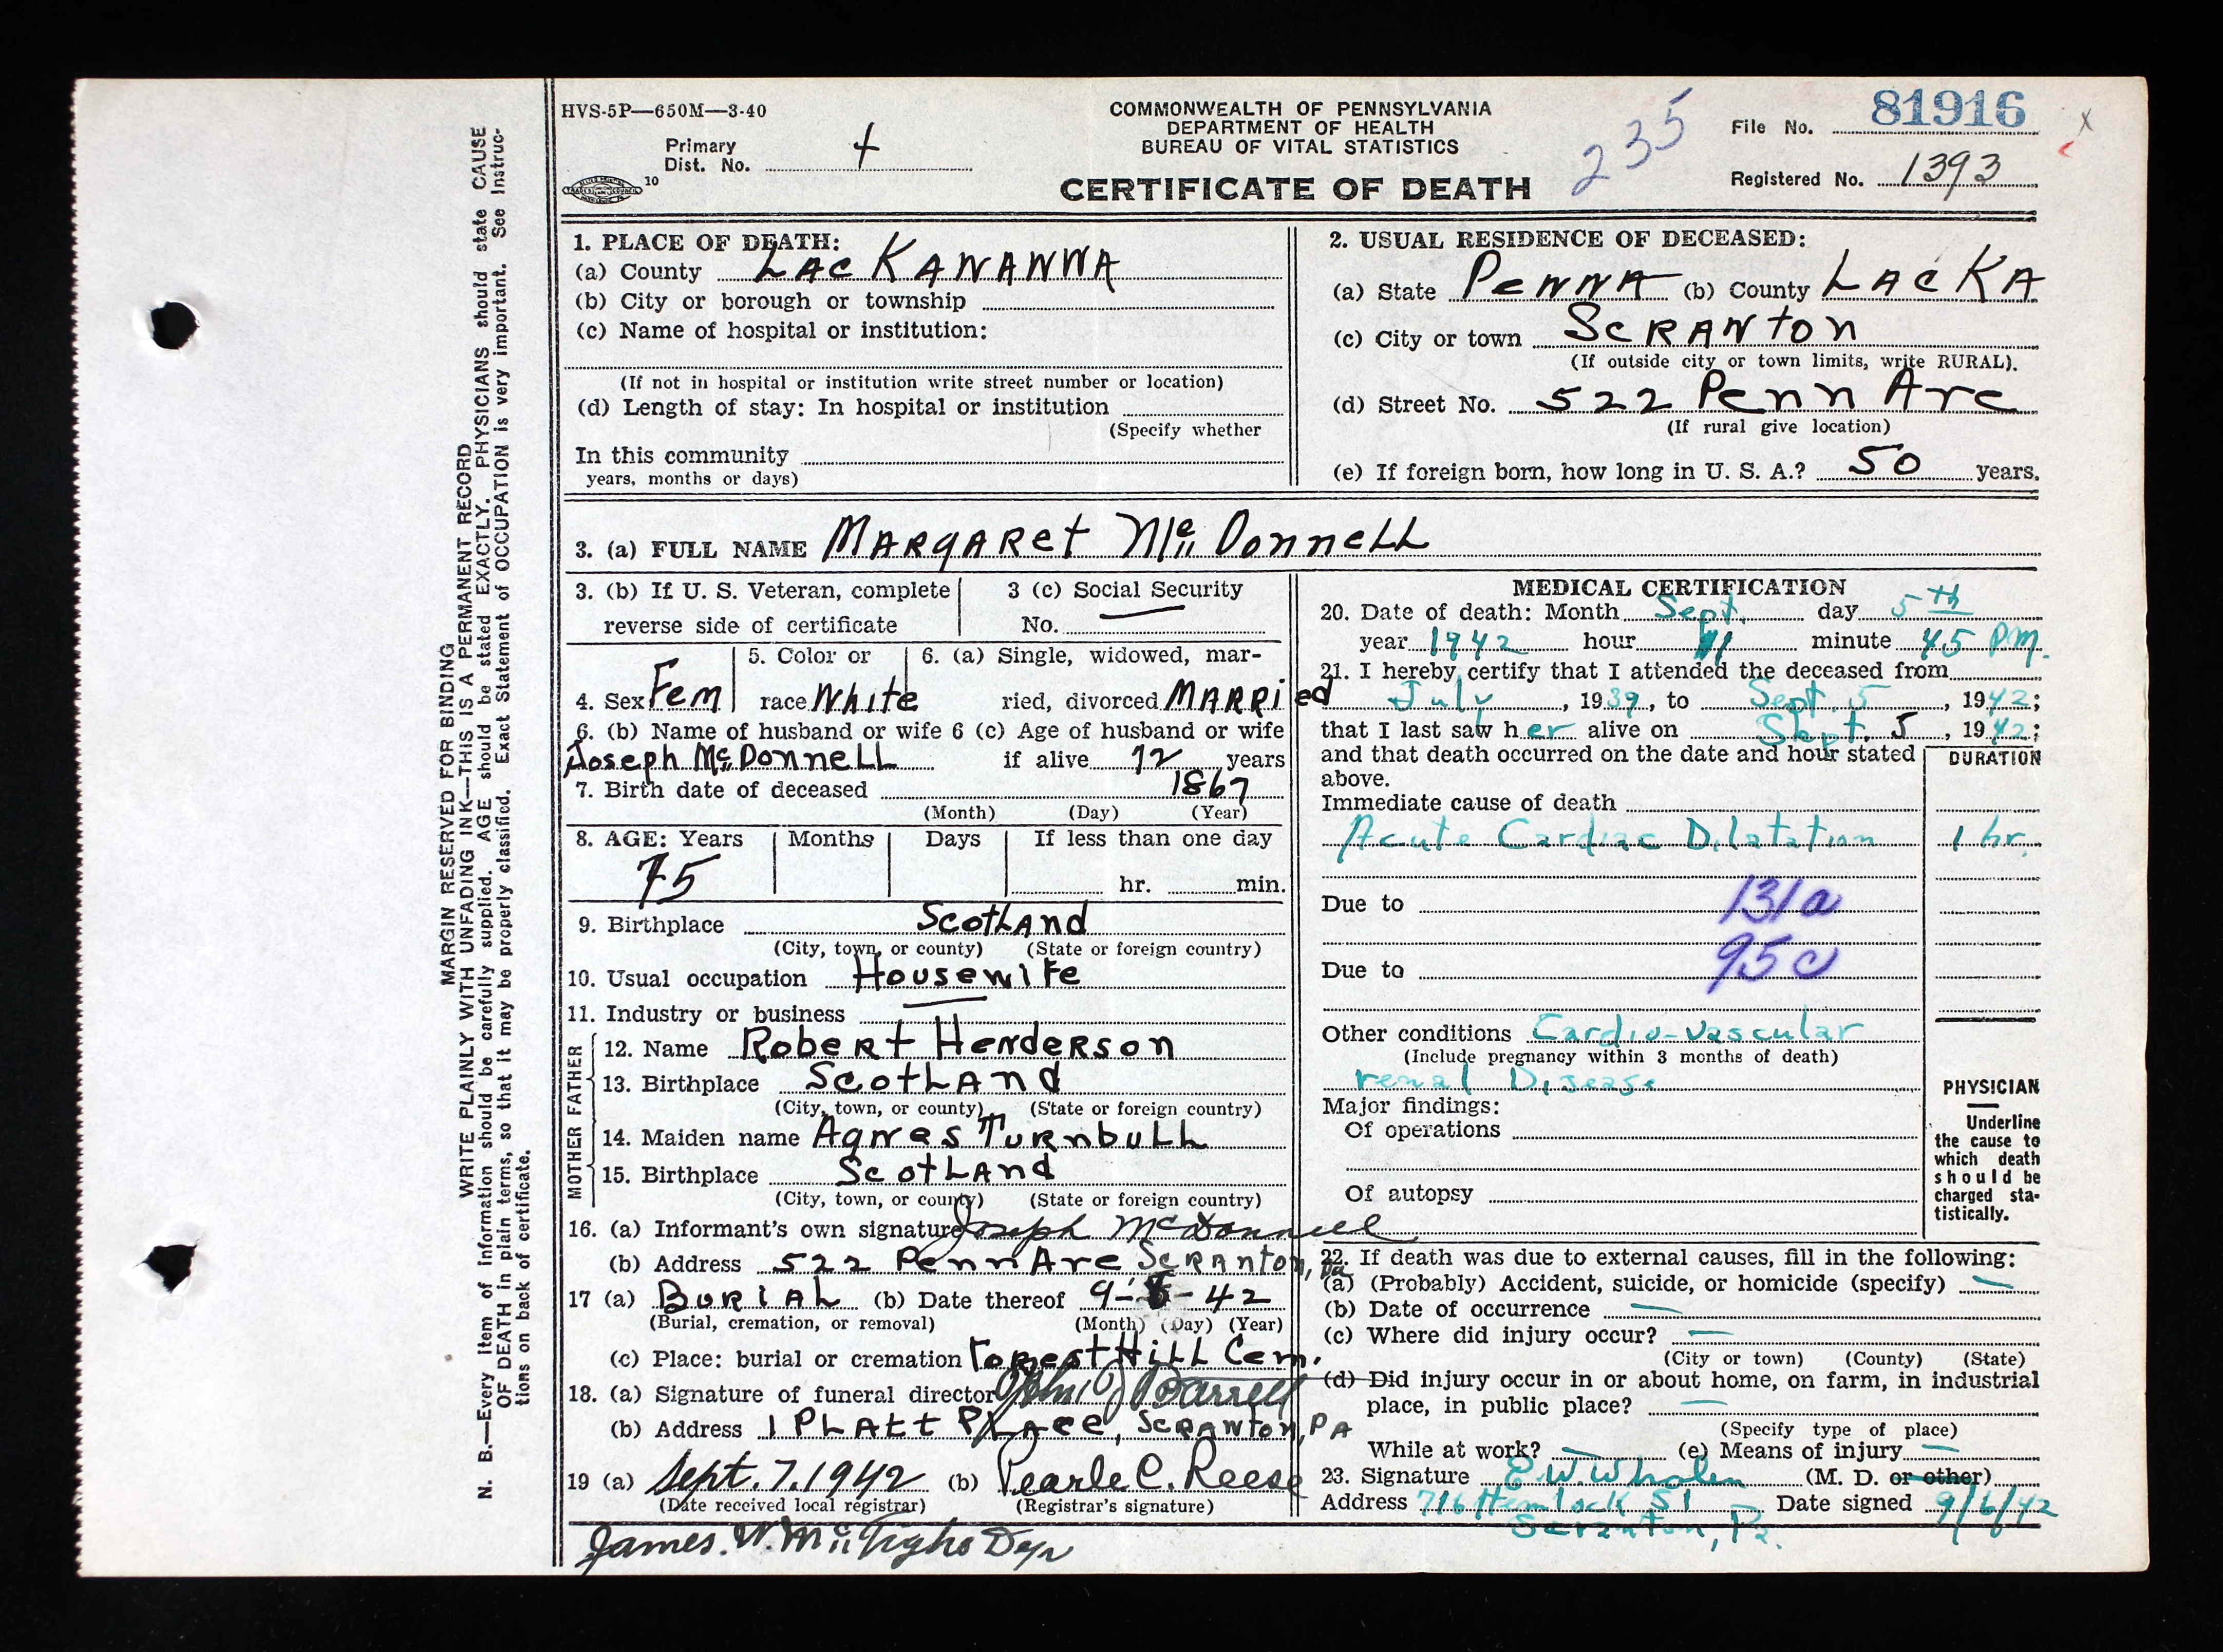 HVS-5P—650M—3-40
Primary
Dist. No. 4
10
COMMONWEALTH OF PENNSYLVANIA
DEPARTMENT OF HEALTH
BUREAU OF VITAL STATISTICS
CERTIFICATE OF DEATH
235
File No. 81916
Registered No. 1393
1. PLACE OF DEATH:
(a) County LACKAWANNA
(b) City or borough or township
(c) Name of hospital or institution:
(If not in hospital or institution write street number or location)
(d) Length of stay: In hospital or institution
(Specify whether
In this community
years, months or days)
2. USUAL RESIDENCE OF DECEASED:
(a) State PENNA (b) County LACKA
(c) City or town SCRANTON
(If outside city or town limits, write RURAL).
(d) Street No. 522 Penn Ave
(If rural give location)
(e) If foreign born, how long in U. S. A.? 50 years.
3. (a) FULL NAME MARGARET McDonnell
3. (b) If U. S. Veteran, complete
reverse side of certificate
3 (c) Social Security
No.
4. Sex Fem
5. Color or
race White
6. (a) Single, widowed, mar-
ried, divorced MARRIED
6. (b) Name of husband or wife 6 (c) Age of husband or wife
Joseph McDonnell if alive 72 years
7. Birth date of deceased 1867
(Month) (Day) (Year)
8. AGE: Years Months Days If less than one day
75 hr. min.
9. Birthplace Scotland
(City, town, or county) (State or foreign country)
10. Usual occupation Housewife
11. Industry or business
FATHER
12. Name Robert Henderson
13. Birthplace Scotland
(City, town, or county) (State or foreign country)
MOTHER
14. Maiden name Agnes Turnbull
15. Birthplace Scotland
(City, town, or county) (State or foreign country)
16. (a) Informant's own signature Joseph McDonnell
(b) Address 522 Penn Ave Scranton, Pa
17 (a) BURIAL (b) Date thereof 9- -42
(Burial, cremation, or removal) (Month) (Day) (Year)
(c) Place: burial or cremation Forest Hill Cem.
18. (a) Signature of funeral director John J Barrell
(b) Address 1 Platt Place, Scranton, PA
19 (a) Sept. 7. 1942 (b) Pearle C. Reese
(Date received local registrar) (Registrar's signature)
James. W. McTighe Dep
MEDICAL CERTIFICATION
20. Date of death: Month Sept. day 5th
year 1942 hour 11 minute 45 PM.
21. I hereby certify that I attended the deceased from
July, 1939, to Sept. 5, 1942;
that I last saw her alive on Sept. 5, 1942;
and that death occurred on the date and hour stated
above.
DURATION
Immediate cause of death
Acute Cardiac Dilatation 1 hr.
Due to 131a
95c
Due to
Other conditions Cardio-vascular
(Include pregnancy within 3 months of death)
renal Disease
Major findings:
Of operations
Of autopsy
PHYSICIAN
Underline
the cause to
which death
should be
charged sta-
tistically.
22. If death was due to external causes, fill in the following:
(a) (Probably) Accident, suicide, or homicide (specify) —
(b) Date of occurrence —
(c) Where did injury occur? —
(City or town) (County) (State)
(d) Did injury occur in or about home, on farm, in industrial
place, in public place? —
(Specify type of place)
While at work? — (e) Means of injury —
23. Signature E. W. Wholen (M. D. or other)
Address 716 Hemlock St Date signed 9/6/42
Scranton, Pa.
MARGIN RESERVED FOR BINDING
WRITE PLAINLY WITH UNFADING INK—THIS IS A PERMANENT RECORD
N. B.—Every item of information should be carefully supplied. AGE should be stated EXACTLY. PHYSICIANS should state CAUSE
OF DEATH in plain terms, so that it may be properly classified. Exact Statement of OCCUPATION is very important. See Instruc-
tions on back of certificate.